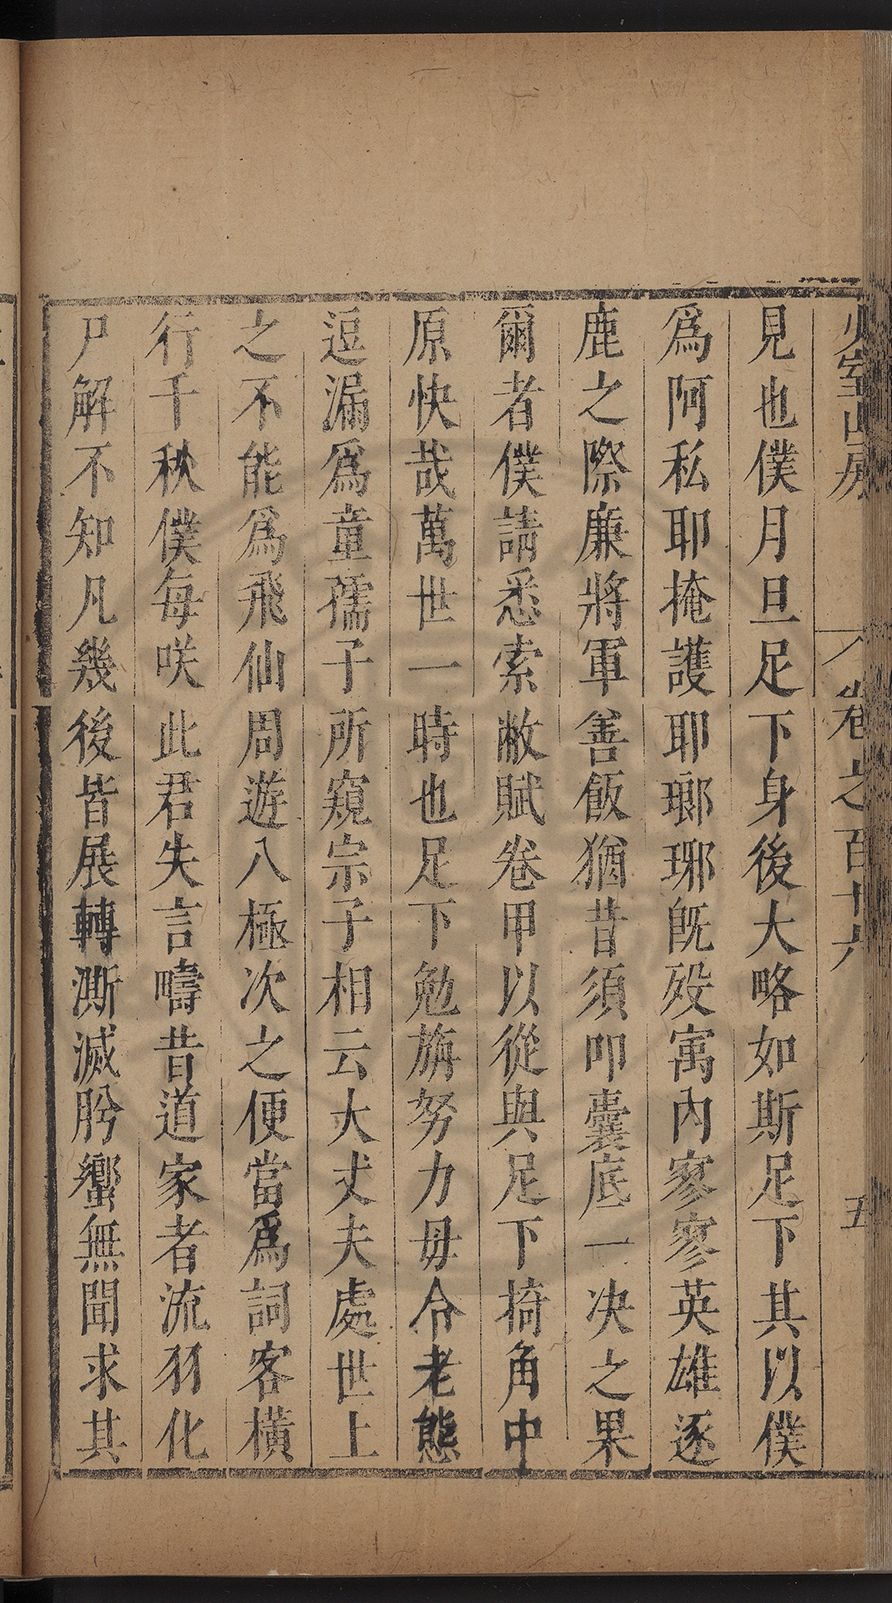 少室山房
卷之百十六
五
見也僕月旦足下身後大略如斯足下其以僕
爲阿私耶掩護耶瑯琊旣歿寓內寥寥英雄逐
鹿之際廉將軍善飯猶昔須叩囊底一决之果
爾者僕請悉索敝賦卷甲以從與足下掎角中
原快哉萬世一時也足下勉旃努力毋令老態
逗漏爲童孺子所窺宗子相云大丈夫處世上
之不能爲飛仙周遊八極次之便當爲詞客橫
行千秋僕每咲此君失言疇昔道家者流羽化
尸解不知凡幾後皆展轉澌滅肹蠁無聞求其